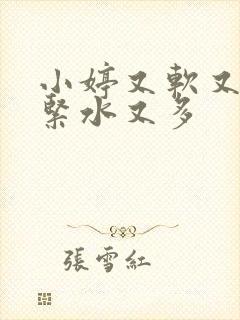 小婷又軟又
緊水又多
張雪紅